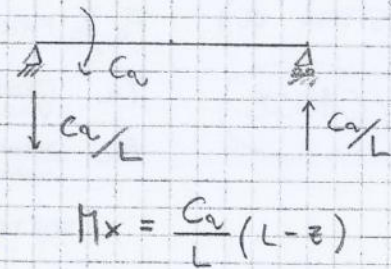 Ca
Ca/L
Ca/L
Mx = Ca/L (L-z)